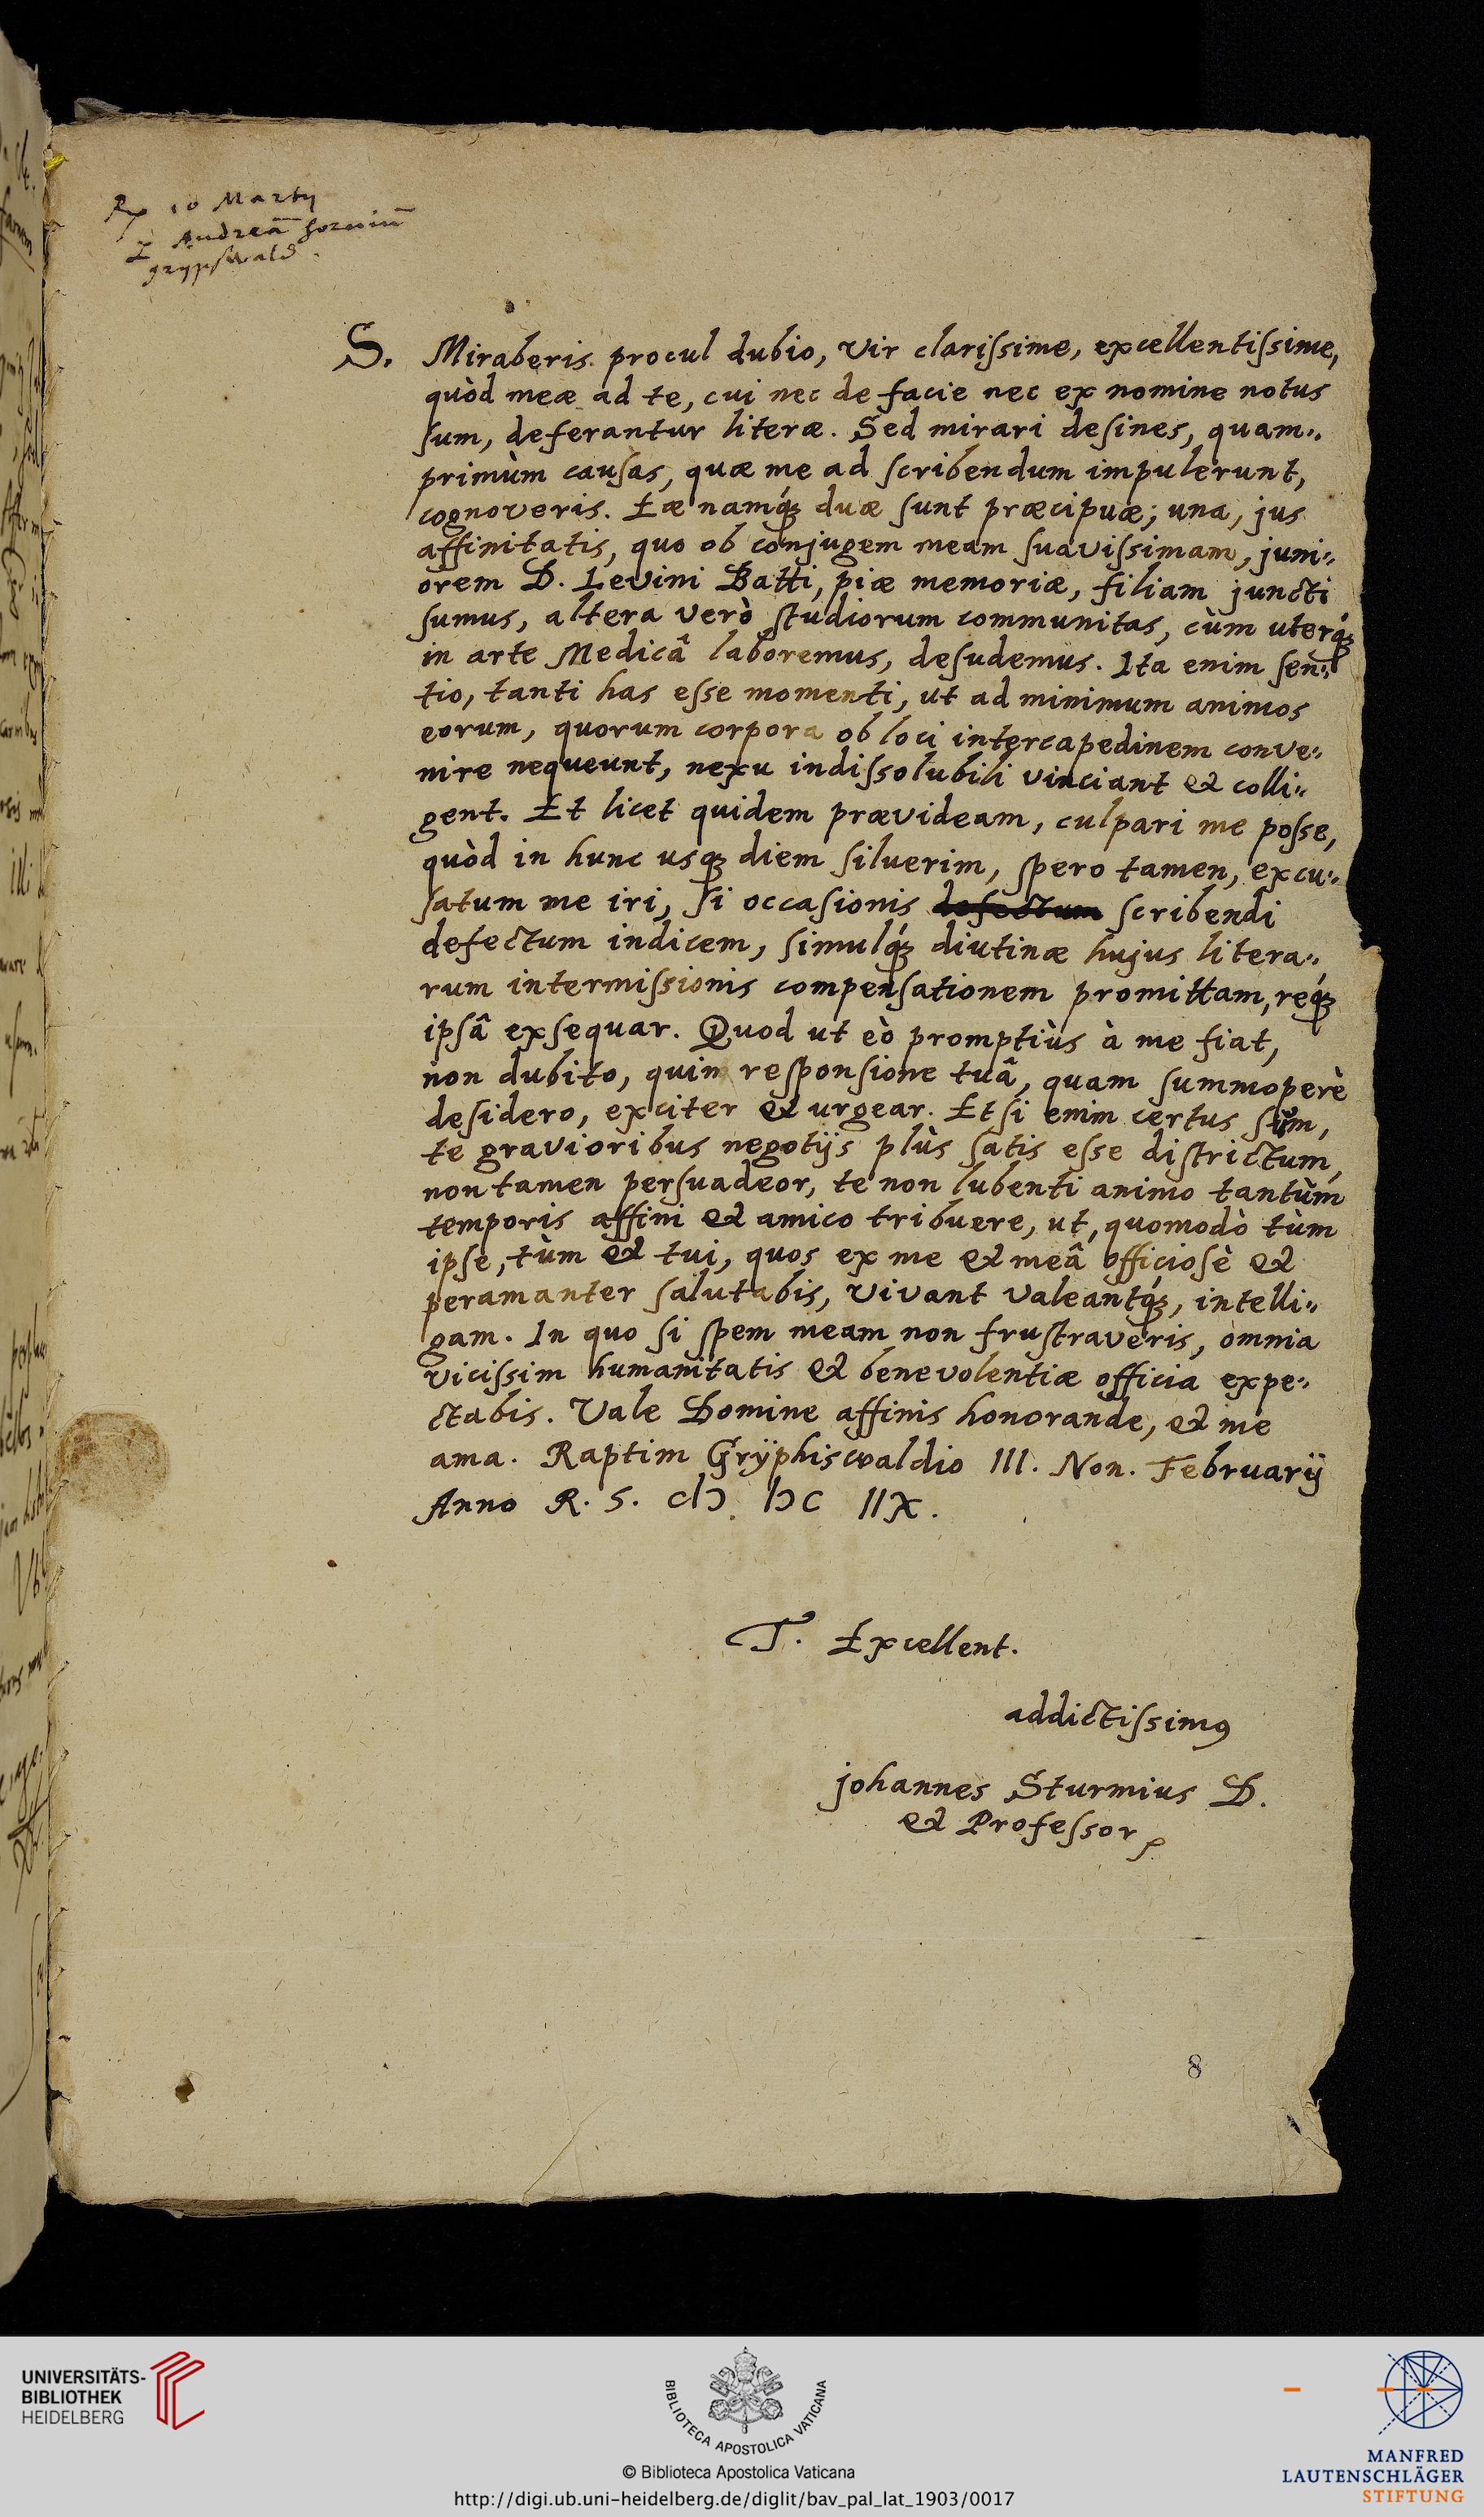 Rp 10 Martij
Andreā
grypswald.
S. Miraberis procul dubio, vir clarissime, excellentissime,
quòd meæ ad te, cui nec de facie nec ex nomine notus
sum, deferantur literæ. Sed mirari desines, quam„
primùm causas, quæ me ad scribendum impulerunt,
cognoveris. Eæ namq́; duæ sunt præcipuæ; una, jus
affinitatis, quo ob conjugem meam suavissimam, juni„
orem D. Levini Batti, piæ memoriæ, filiam juncti
sumus, altera verò studiorum communitas, cùm uterq́;
in arte Medicâ laboremus, desudemus. Ita enim sen„
tio, tanti has esse momenti, ut ad minimum animos
eorum, quorum corpora ob loci intercapedinem conve„
nire nequeunt, nexu indissolubili vinciant & colli„
gent. Et licet quidem prævideam, culpari me posse,
quòd in hunc usq; diem siluerim, spero tamen, excu„
satum me iri, si occasionis defectum scribendi
defectum indicem, simulq́; diutinæ hujus litera„
rum intermissionis compensationem promittam, req́;
ipsâ exsequar. Quod ut eò promptiùs à me fiat,
non dubito, quin responsione tuâ, quam summoperè
desidero, exciter & urgear. Etsi enim certus sum,
te gravioribus negotijs plùs satis esse districtum,
non tamen persuadeor, te non lubenti animo tantùm
temporis affini & amico tribuere, ut, quomodò tùm
ipse, tùm & tui, quos ex me & meâ officiosè &
peramanter salutabis, vivant valeantq́;, intelli„
gam. In quo si spem meam non frustraveris, omnia
vicissim humanitatis & benevolentiæ officia expe„
ctabis. Vale Domine affinis honorande, & me
ama. Raptim Grÿphiswaldio III. Non. Februarij
Anno R. S. cIↃ. IↃC IIX.
T. Excellent.
addictissimꝰ
johannes Sturmius D.
& Professor
8
UNIVERSITÄTS-
BIBLIOTHEK
HEIDELBERG
BIBLIOTECA APOSTOLICA VATICANA
© Biblioteca Apostolica Vaticana
http://digi.ub.uni-heidelberg.de/diglit/bav_pal_lat_1903/0017
MANFRED
LAUTENSCHLÄGER
STIFTUNG